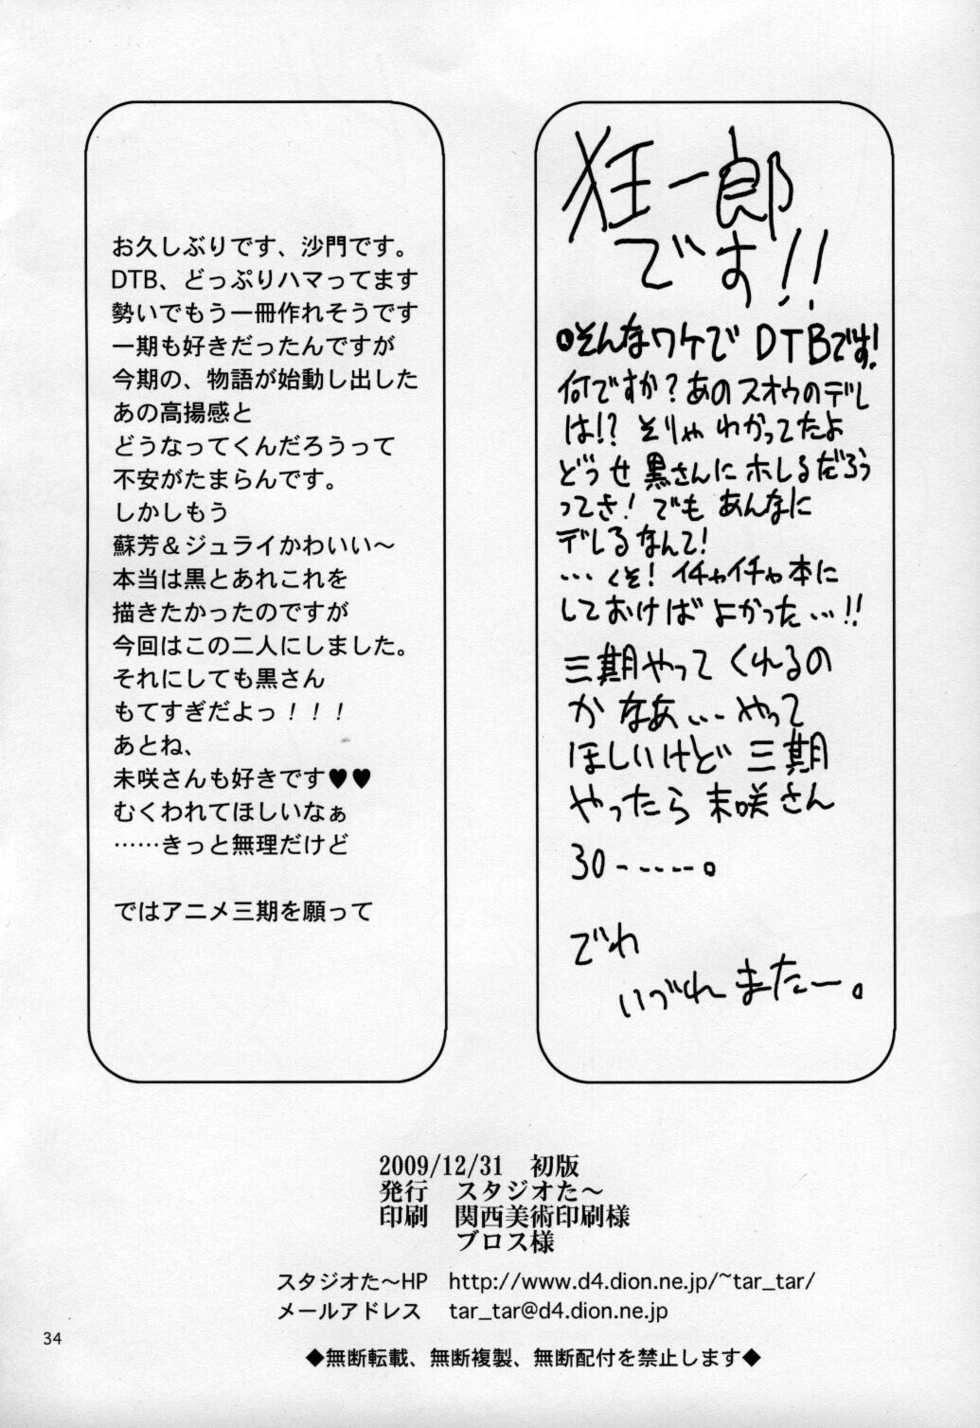 狂一郎
です!!
そんなワケで DTBです!
何ですか?あのスオウのデレ
は!?そりゃわかってたよ
どうせ黒さんにホレるだろう
ってさ!でもあんなに
デレるなんて!
…くそ!イチャイチャ本に
しておけばよかった…!!
三期やってくれるの
かなあ…やって
ほしいけど三期
やったら未咲さん
30------。
でわ
いづれまたー。
お久しぶりです、沙門です。
DTB、どっぷりハマってます
勢いでもう一冊作れそうです
一期も好きだったんですが
今期の、物語が始動し出した
あの高揚感と
どうなってくんだろうって
不安がたまらんです。
しかしもう
蘇芳＆ジュライかわいい～
本当は黒とあれこれを
描きたかったのですが
今回はこの二人にしました。
それにしても黒さん
もてすぎだよっ！！！
あとね、
未咲さんも好きです♥♥
むくわれてほしいなぁ
……きっと無理だけど
ではアニメ三期を願って
2009/12/31　初版
発行　スタジオた～
印刷　関西美術印刷様
ブロス様
スタジオた～HP　http://www.d4.dion.ne.jp/~tar_tar/
メールアドレス　tar_tar@d4.dion.ne.jp
34
◆無断転載、無断複製、無断配付を禁止します◆